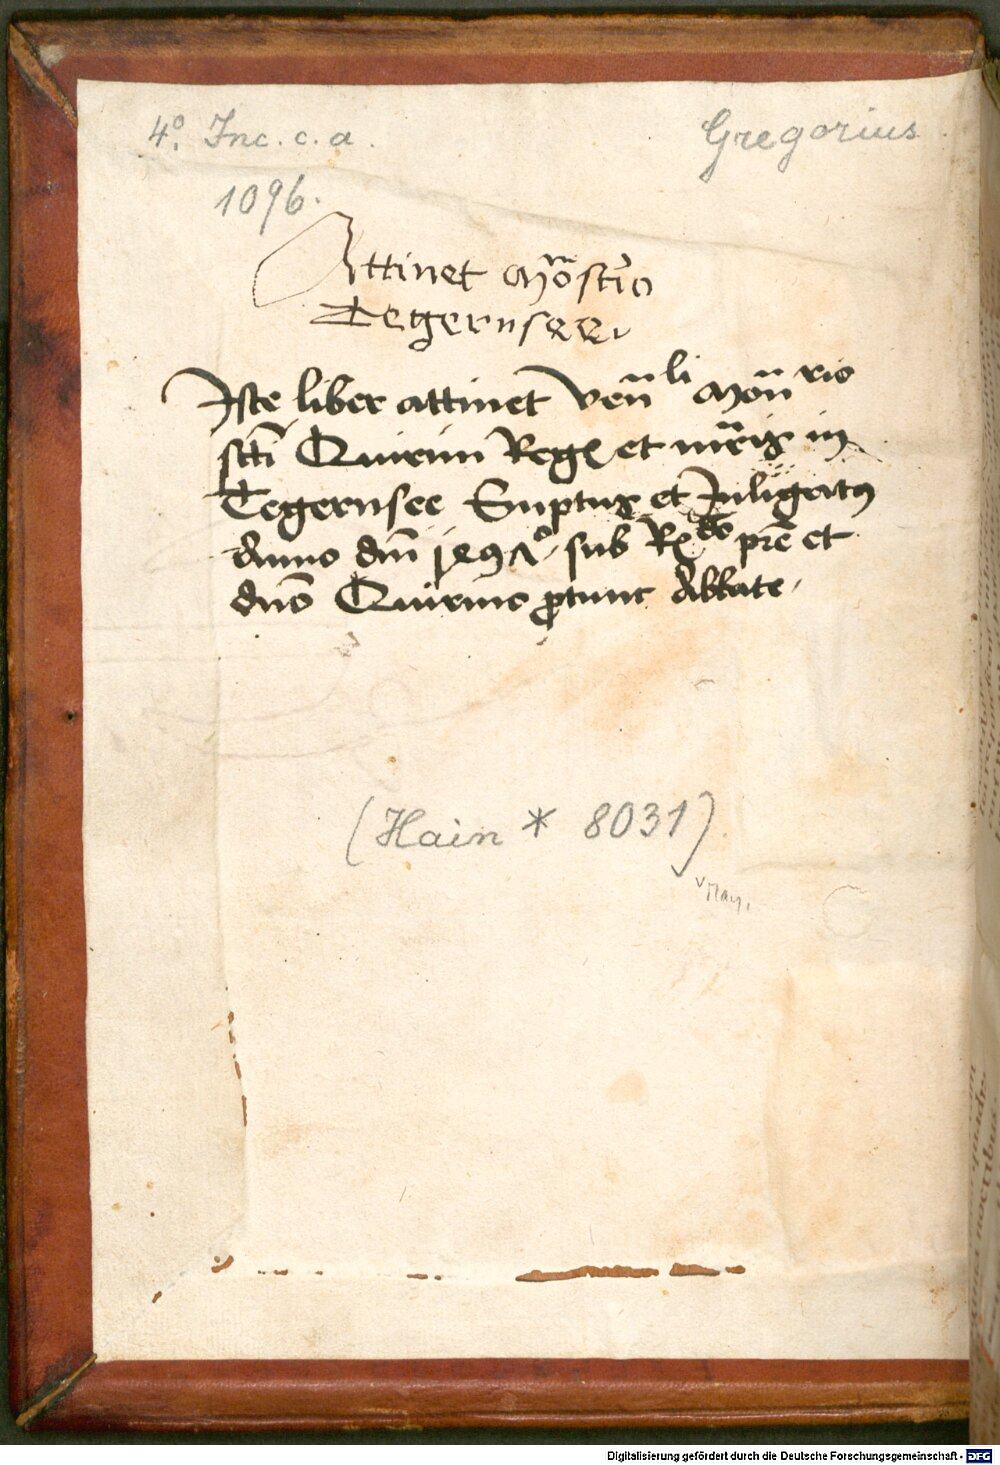 4º Inc. c. a.
Gregorius
1096.
Attinet Mo̅ste̅rio
Tegernsee.
Iste liber attinet ven̅li Mon̅rio
sc̅ti Quirini Reg͛ et m̅ris in
Tegernsee Emptus et Inligatus
Anno dn̅i 1497º. sub R͛do pr̅e et
dn̅o Quirino ꝓtunc Abbate.
(Hain * 8031)
Digitalisierung gefördert durch die Deutsche Forschungsgemeinschaft - DFG